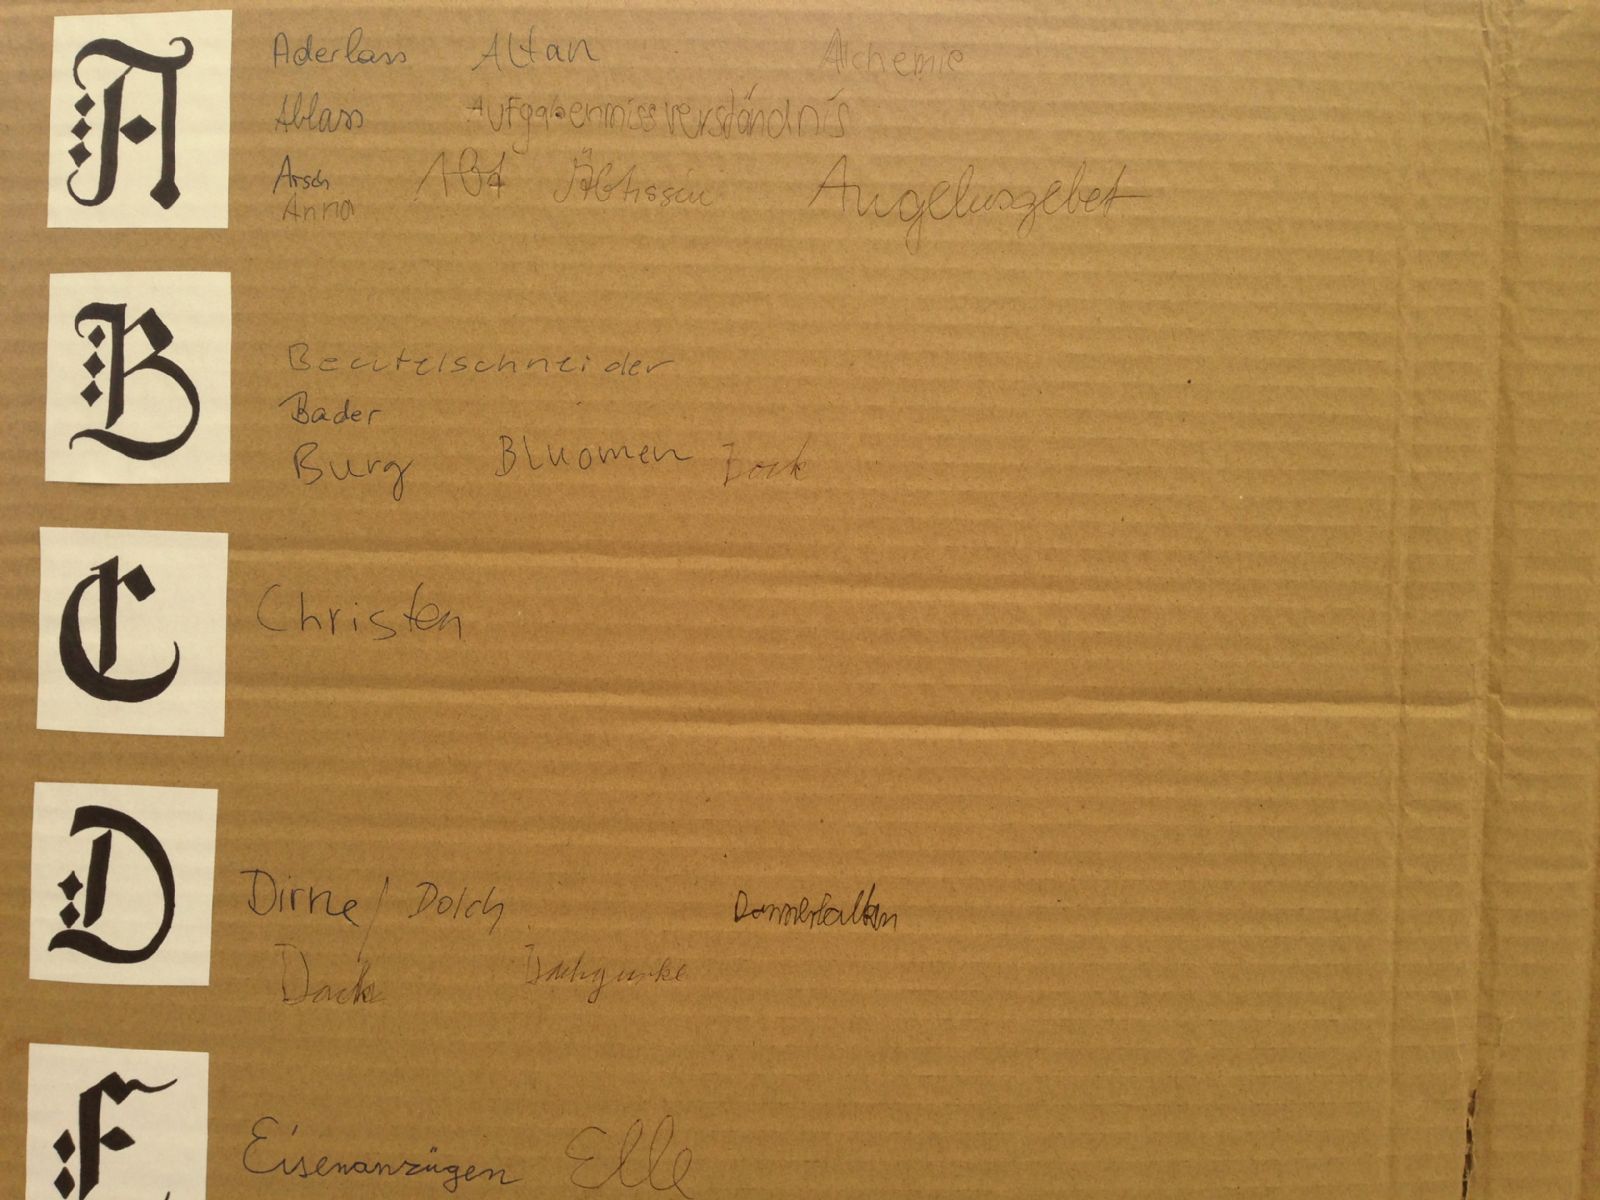 A
Aderlass Altan Alchemie
Ablass Aufgabenmissverständnis
Arsch Abt Äbtissin Angelusgebet
Anna
B
Beutelschneider
Bader
Burg Bluomen
C
Christen
D
Dirne / Dolch
E
Eisenanzügen Elle